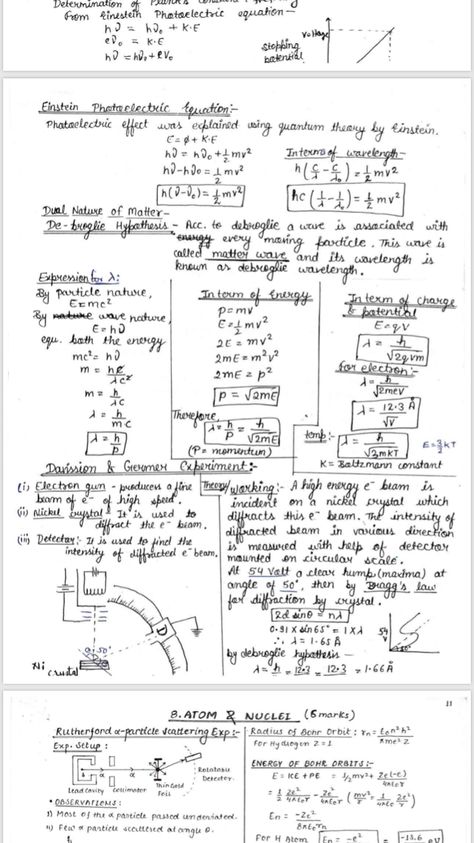 Determination of Planck's constant
From Einstein Photoelectric equation:-
hν = hν₀ + K.E
eV₀ = K.E
hν = hν₀ + eV₀
voltage
stopping
potential
Einstein Photoelectric Equation:-
Photoelectric effect was explained using quantum theory by Einstein.
E = φ + K.E
hν = hν₀ + 1/2 mv²
hν - hν₀ = 1/2 mv²
h(ν-ν₀) = 1/2 mv²
In terms of wavelength-
h(c/λ - c/λ₀) = 1/2 mv²
hc(1/λ - 1/λ₀) = 1/2 mv²
Dual Nature of Matter-
De-broglie Hypothesis - Acc. to debroglie a wave is associated with
energy every moving particle. This wave is
called matter wave and its wavelength is
known as debroglie wavelength.
Expression for λ:
By particle nature,
E = mc²
By nature wave nature,
E = hν
equ. both the energy
mc² = hν
m = hc/λc²
m = h/λc
λ = h/mc
λ = h/p
In term of Energy
p = mv
E = 1/2 mv²
2E = mv²
2mE = m²v²
2mE = p²
p = √2mE
Therefore,
λ = h/p = h/√2mE
(P = momentum)
In term of charge
& potential
E = qV
λ = h/√2qvm
for electron:-
λ = h/√2meV
λ = 12.3/√V Å
temp:- λ = h/√3mKT E = 3/2 KT
K = Boltzmann constant
Davission & Germer Experiment:-
(i) Electron gun - produces a fine
beam of e⁻ of high speed.
(ii) Nickel crystal - It is used to
diffract the e⁻ beam.
(iii) Detector:- It is used to find the
intensity of diffracted e⁻ beam.
D
θ 50°
Ni
crystal
Theory/working:- A high energy e⁻ beam is
incident on a nickel crystal which
diffracts this e⁻ beam. The intensity of
diffracted beam in various direction
is measured with help of detector
mounted on circular scale.
At 54 Volt a clear hump (maxima) at
angle of 50°, then by Bragg's law
for diffraction by crystal.
2d sinθ = nλ
0.91 X sin65° = 1 X λ
∴ λ = 1.65 Å
54
V
by debroglie hypothesis -
λ = h = 12.3 = 12.3 = 1.66 Å
11
8. ATOM & NUCLEI (6 marks)
Rutherford α-particle scattering Exp:-
Exp. Setup:
b
α
α
Rotatable
Detector.
Lead cavity Collimator Thin Gold
Foil
• OBSERVATIONS:
i) Most of the α particle passed undeviated.
ii) Few α particle scattered at angle θ.
Radius of Bohr Orbit: rn = ε₀n²h²/πme²Z
For Hydrogen Z=1
ENERGY OF BOHR ORBITS:-
E = KE + PE = 1/2 mv² + Ze(-e)/4πε₀r
= 1/2 Ze²/4πε₀r - Ze²/4πε₀r (mv²/r = 1/4πε₀ Ze²/r²)
En = -Ze²/8πε₀rn
For H Atom En = -e² = -13.6 eV